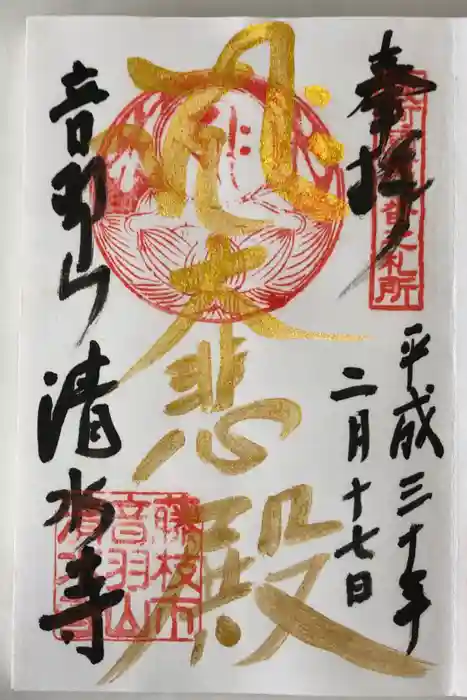 奉拝
平成三十年
二月十七日
大悲殿
音羽山
清水寺
藤枝市
音羽山
清水寺